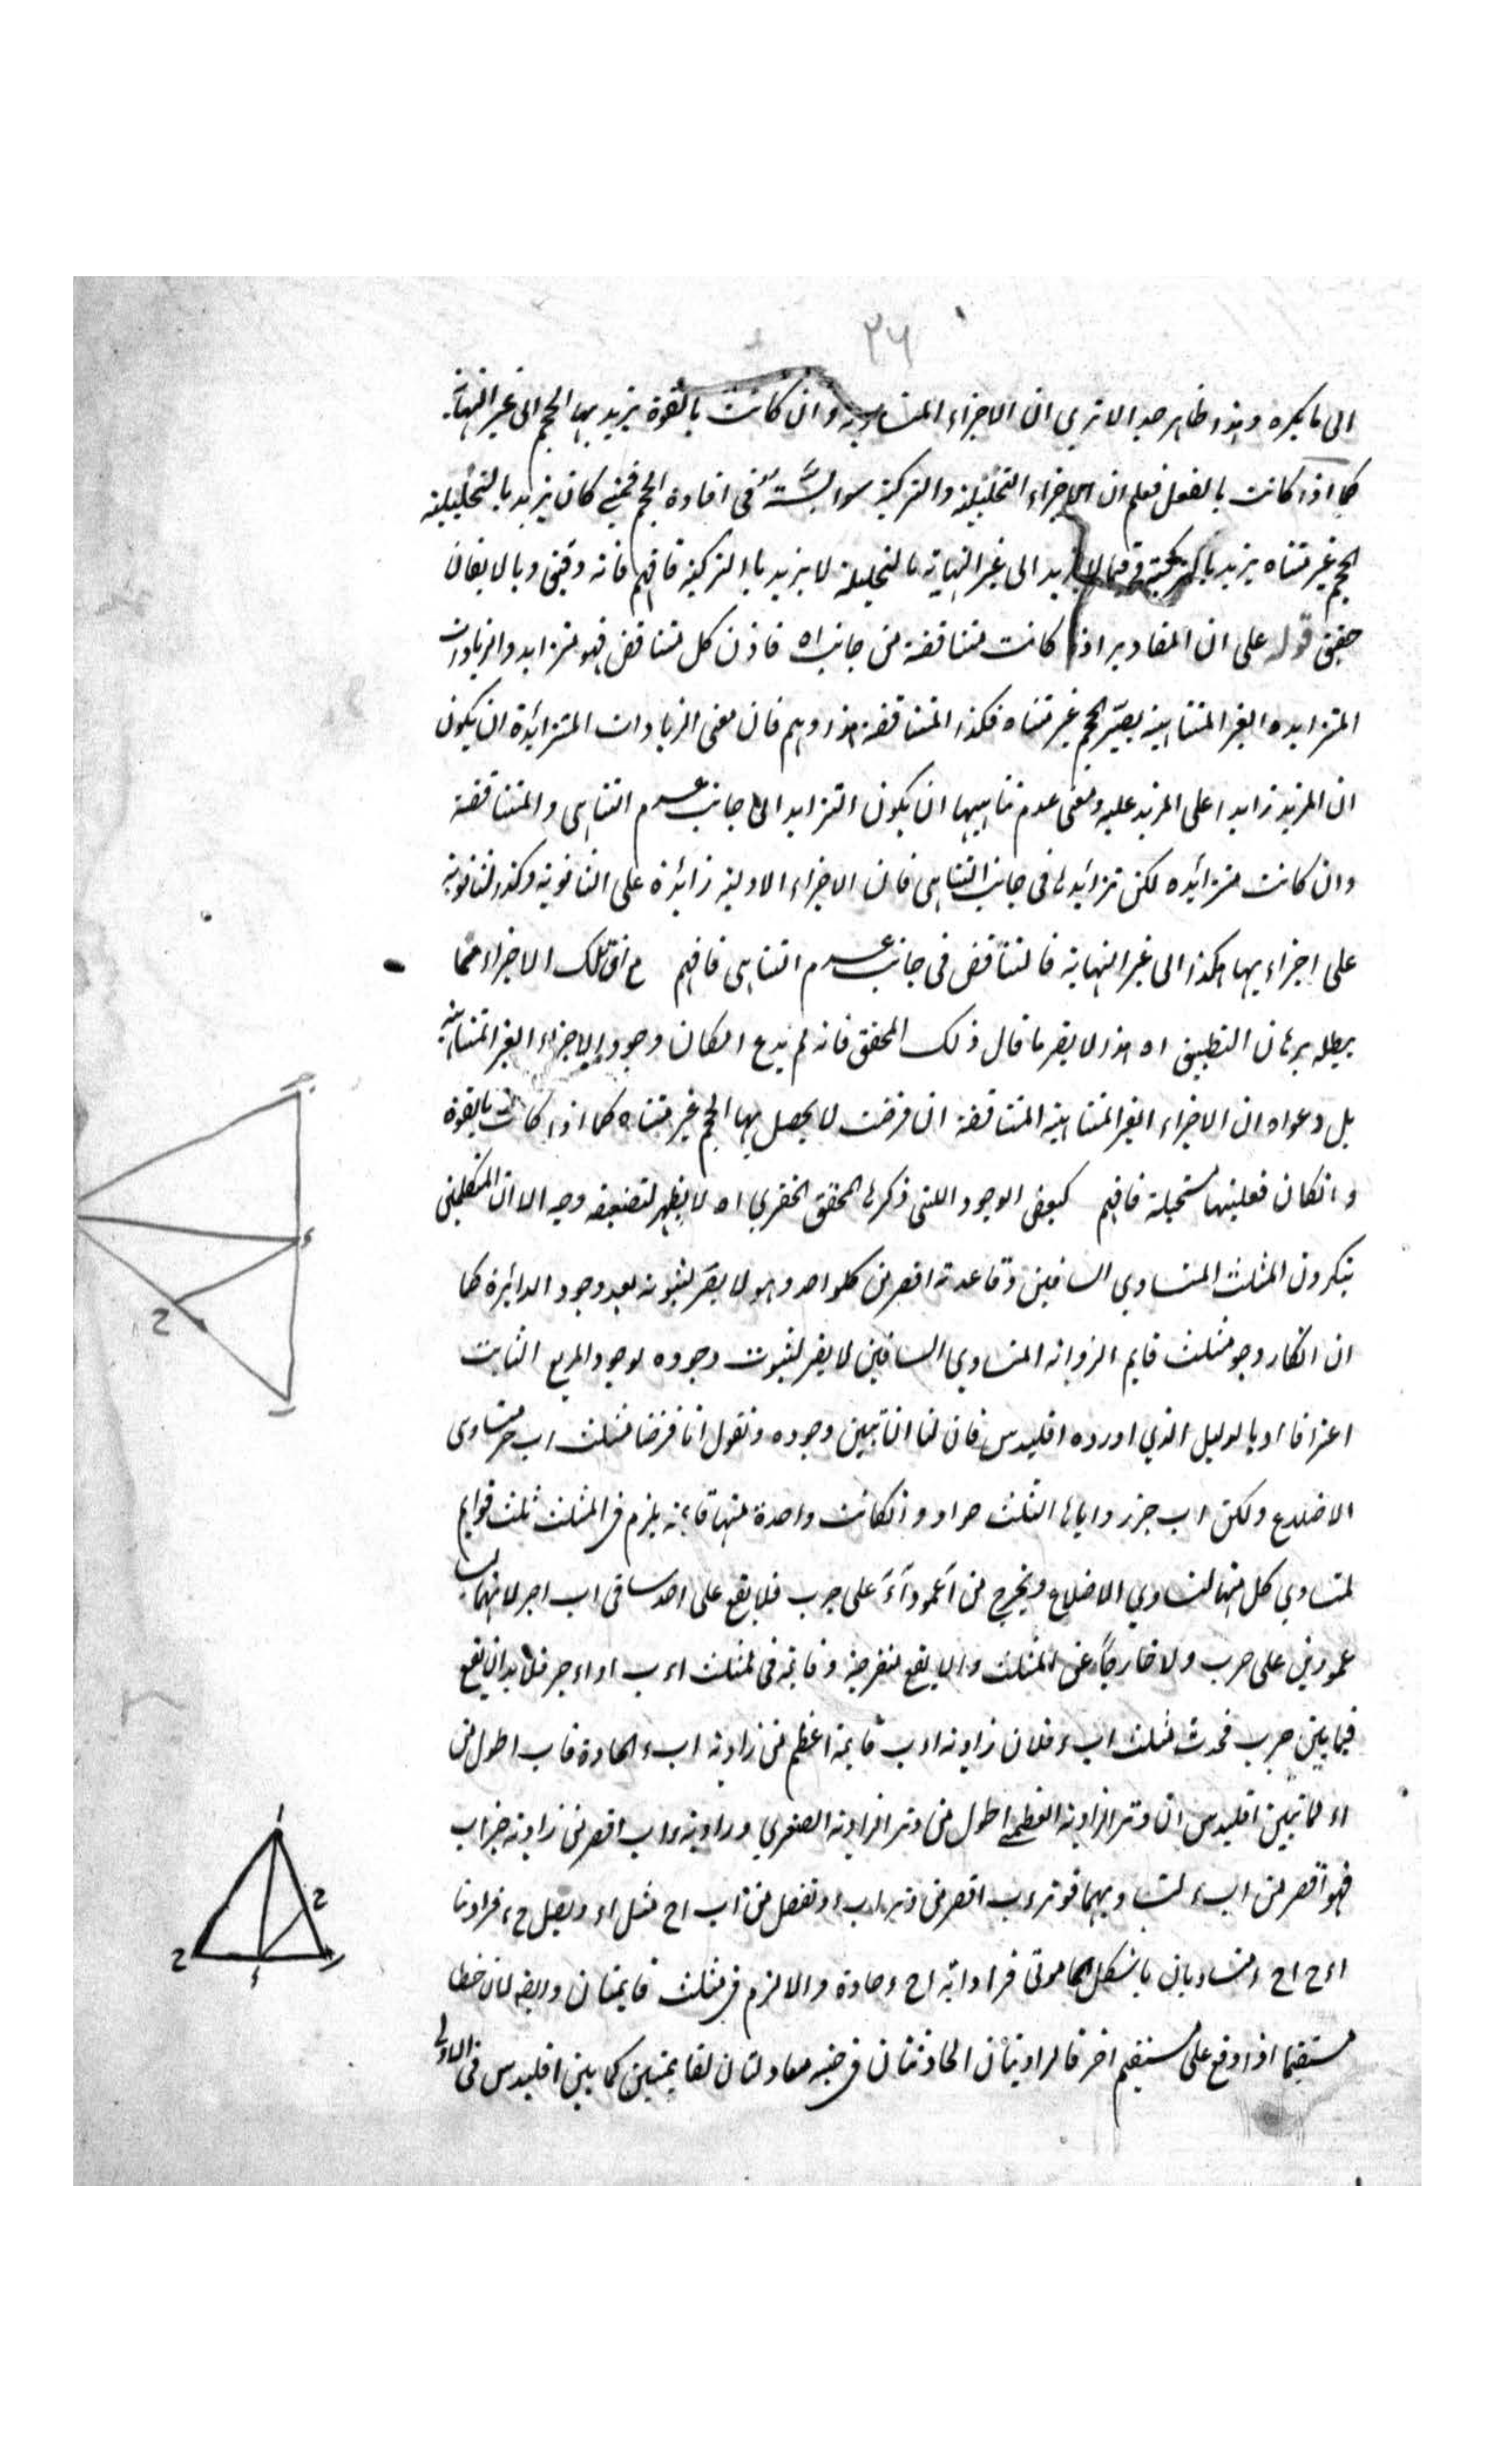 ٢٦
الى ما يكره وهذا ظاهر جدا الا ترى ان الاجزاء المتساوية وان كانت بالقوة يزيد بها الحجم الى غير النهاية
كما اذا كانت بالفعل فعلم ان الاجزاء التحليلية والتركيبية سواسية في افادة الحجم فحيث كان يزيد بالتحليلية
الحجم غير متناه يزيد بالتركيبية وفيما لا يزيد الى غير النهاية بالتحليلية لا يزيد بالتركيبية فافهم فانه دقيق وبالايقان
حقيق قوله على ان المقادير اذا كانت متناقصة من جانب اه فاذن كل متناقض فهو متزايد والزيادات
المتزايده الغير المتناهية يصير الحجم غير متناه فكذا المتناقصة هذا وهم فان معنى الزيادات المتزائدة ان يكون
ان المزيد زايدا على المزيد عليه ومعنى عدم تناهيها ان يكون التزايد الى جانب عدم التناهي والمتناقصة
وان كانت متزائده لكن تزائدها في جانب التناهي فان الاجزاء الاولية زائدة على الثانوية وكذا الثانوية
على اجزاءها هكذا الى غير النهاية فالتناقض في جانب عدم التناهي فافهم مع ان تلك الاجزاء مما
يبطله برهان التطبيق اه هذا لا يضر ما قال ذلك المحقق فانه لم يدع امكان وجود الاجزاء الغير المتناهية
بل دعواه ان الاجزاء الغير المتناهية المتناقصة ان فرضت لا يحصل بها الحجم غير متناه كما اذا كانت بالقوة
وانكان فعليتها مستحيلة فافهم كبعض الوجوه اللتى ذكرها المحقق الخفري اه لا يظهر لتضعيفه وجه الا ان المتكلمين
ينكرون المثلث المتساوي الساقين وقاعدته اقصر من كل واحد وهو لا يضر لثبوته بعد وجود الدائرة كما
ان انكار وجو مثلث قايم الزواية المتساوي الساقين لا يضر لثبوت وجوده لوجود المربع الثابت
اعترافا او بالدليل الذي اورده اقليدس فان لنا ان نبين وجوده ونقول انا فرضنا مثلث اب ج متساوى
الاضلاع ولكن اب ج زواياها الثلث حواد وانكانت واحدة منها قايمة يلزم في المثلث ثلث قوايم
لتساوي كل منها لتساوي الاضلاع ويخرج من آ عمود آء على ج ب فلا يقع على احد ساقى اب اج لانهما ليسا
عمودين على ج ب ولا خارجا عن المثلث والا يقع منفرجة وقايمة في مثلث اء ب او اء ج فلا بد ان يقع
فيما بين ج ب فحدث مثلث اب ء فلان زاوية اء ب قايمة اعظم من زاوية اب ء الحادة فاب اطول من
اء لما تبين اقليدس ان وتر الزاوية العظمى اطول من وتر الزاوية الصغرى وزاوية ء اب اقصر من زاوية ج اب
فهو اقصر من اب ء لتساويهما فوتر ء ب اقصر من وتر اب او نفصل من اب اح مثل اء ويصل ح ء فزاويتا
اء ح اح ء متساويان بالشكل المامونى فزاواية اح ء حادة والا لزم في مثلث قايمتان وايضا لان خطا
مستقيما اذا وقع على مستقيم اخر فالزاويتان الحادثتان في جنبه معادلتان لقايمتين كما بين اقليدس في الاولى